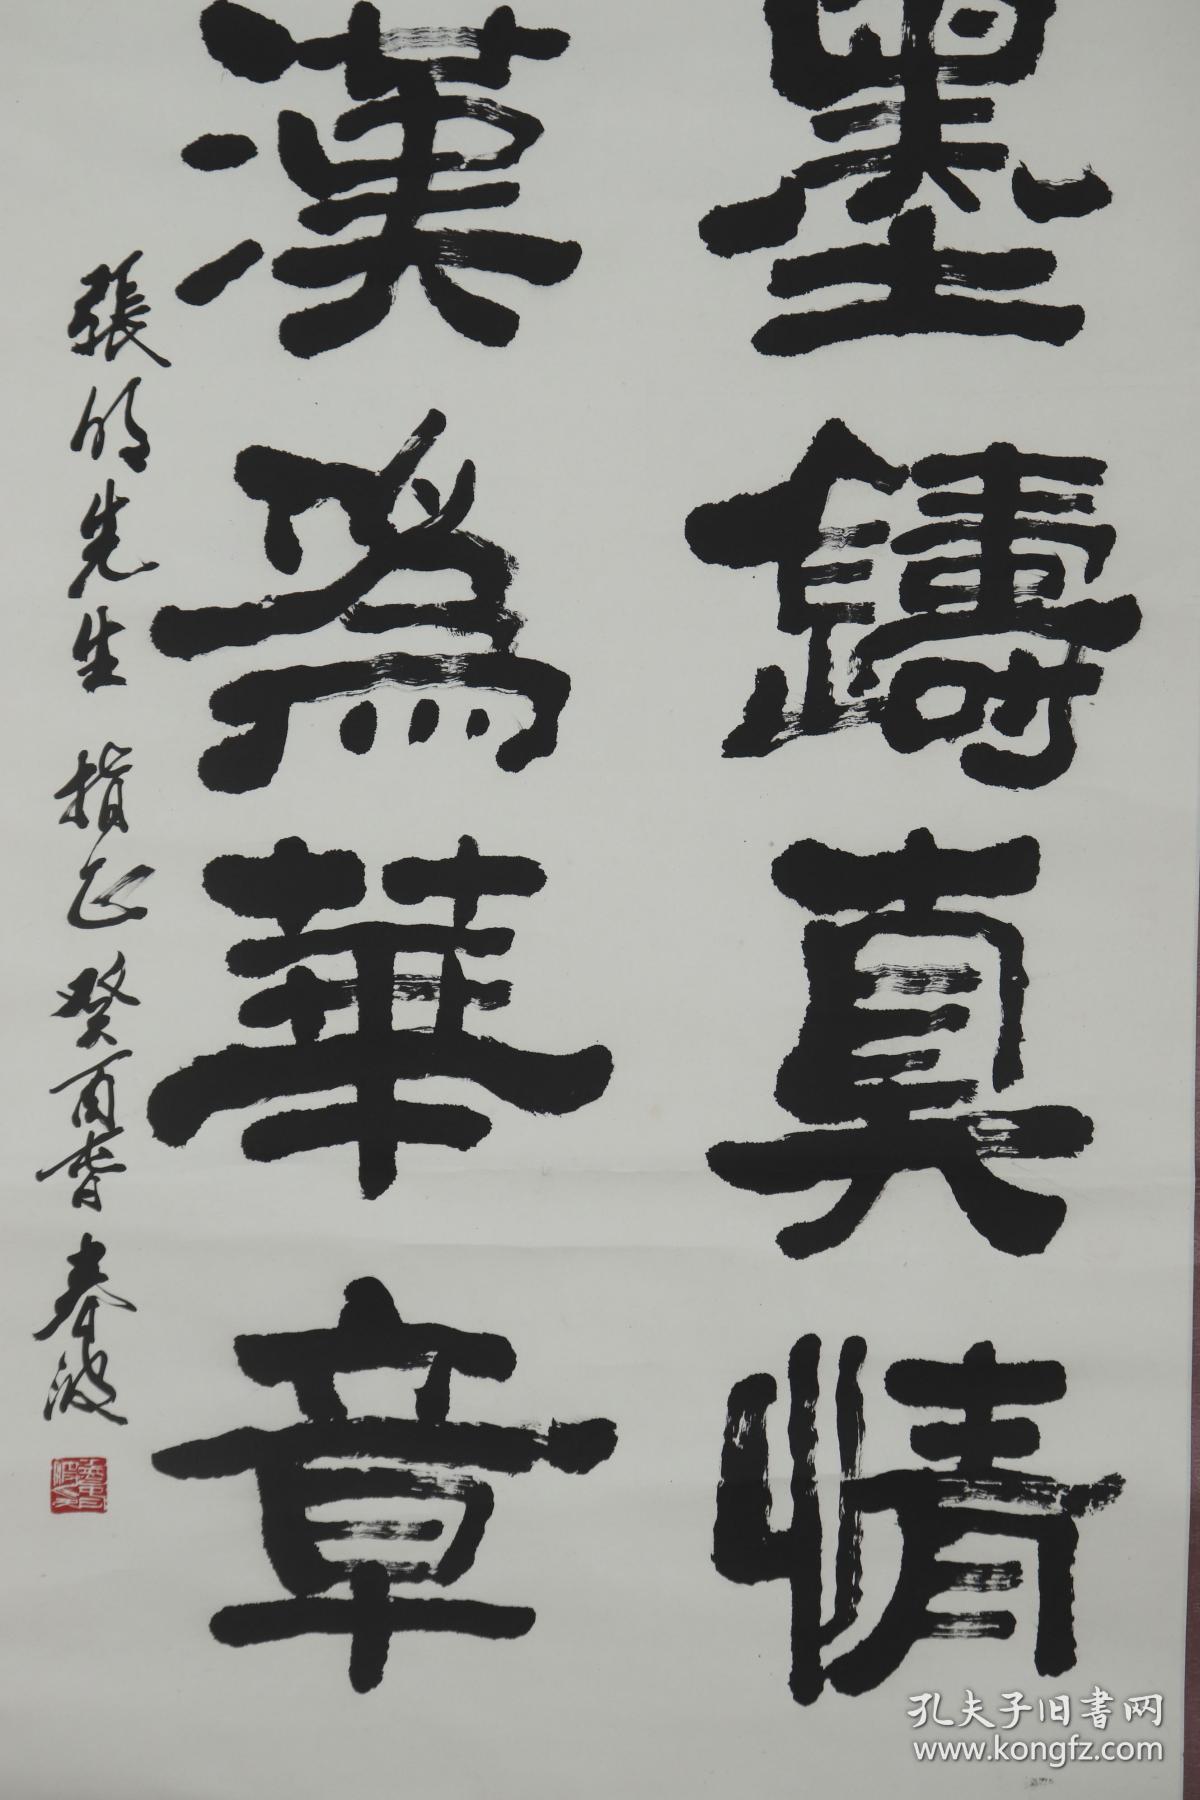 墨鑄真情
漢為華章
張明先生 指正 癸酉春 春波
孔夫子旧书网
www.kongfz.com